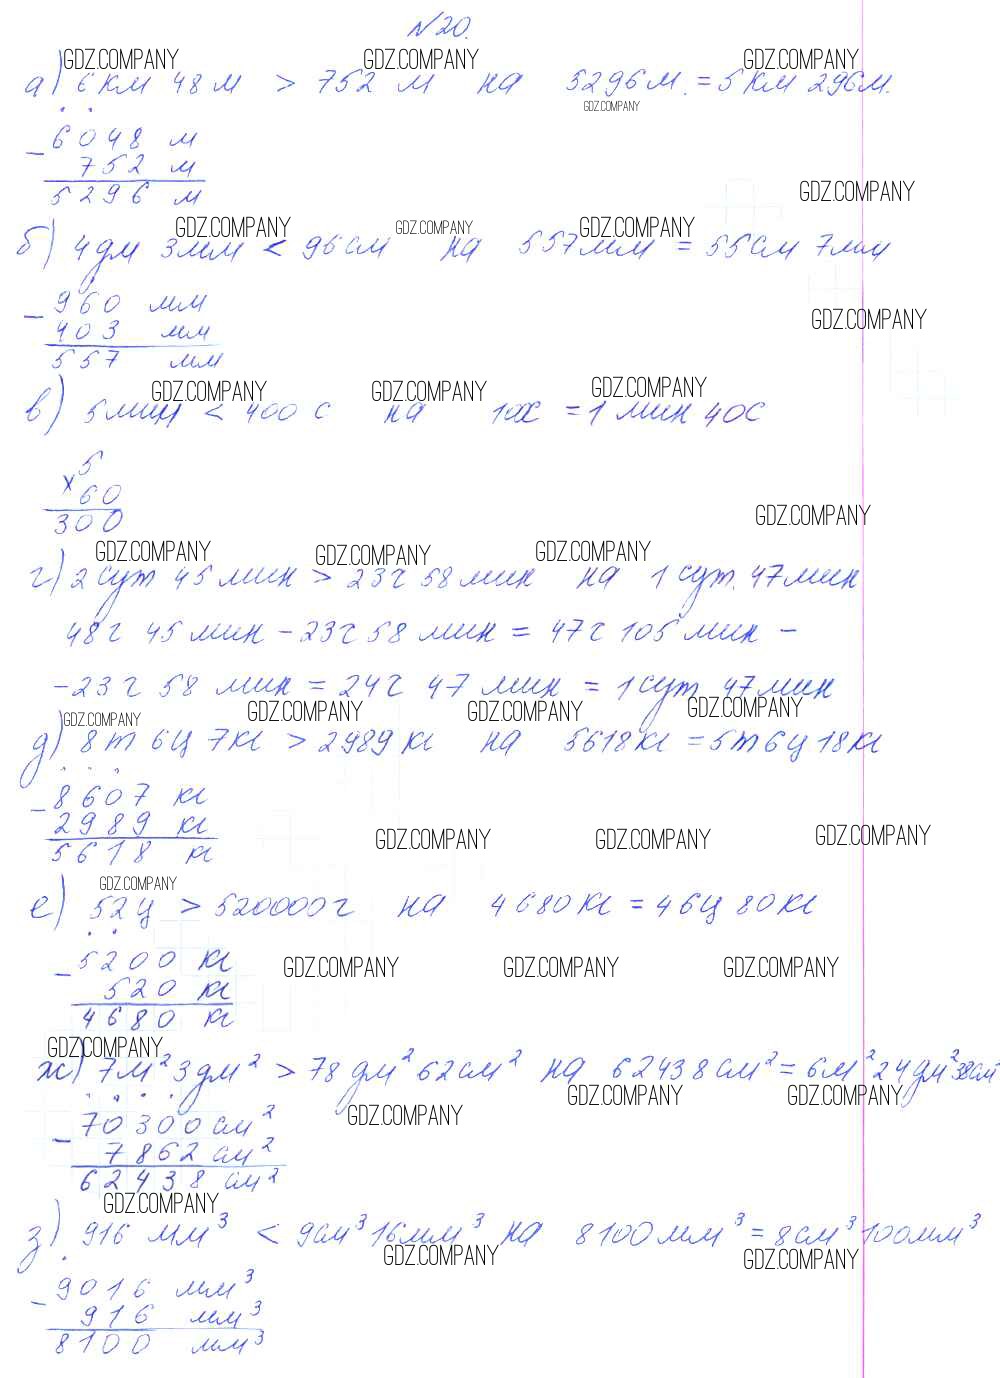 №20.
GDZ.COMPANY GDZ.COMPANY GDZ.COMPANY
а) 6 км 48 м > 752 м на 5296 м. = 5 км 296 м.
GDZ.COMPANY
− 6048 м
752 м
5296 м
GDZ.COMPANY
GDZ.COMPANY GDZ.COMPANY GDZ.COMPANY
б) 4 дм 3 мм < 96 см на 557 мм = 55 см 7 мм
− 960 мм
403 мм
557 мм
GDZ.COMPANY
GDZ.COMPANY GDZ.COMPANY GDZ.COMPANY
в) 5 мин < 400 с на 100с = 1 мин 40 с
× 5
60
300
GDZ.COMPANY
GDZ.COMPANY GDZ.COMPANY GDZ.COMPANY
г) 2 сут 45 мин > 23 ч 58 мин на 1 сут. 47 мин
48 ч 45 мин − 23 ч 58 мин = 47 ч 105 мин −
− 23 ч 58 мин = 24 ч 47 мин = 1 сут 47 мин
GDZ.COMPANY GDZ.COMPANY GDZ.COMPANY GDZ.COMPANY
д) 8 т 6 ц 7 кг > 2989 кг на 5618 кг = 5 т 6 ц 18 кг
− 8607 кг
2989 кг
5618 кг
GDZ.COMPANY GDZ.COMPANY GDZ.COMPANY
GDZ.COMPANY
е) 52 ц > 520000 г на 4680 кг = 46 ц 80 кг
− 5200 кг
520 кг
4680 кг
GDZ.COMPANY GDZ.COMPANY GDZ.COMPANY
GDZ.COMPANY
ж) 7 м² 3 дм² > 78 дм² 62 см² на 62438 см² = 6 м² 24 дм² 38 см²
GDZ.COMPANY GDZ.COMPANY GDZ.COMPANY
− 70300 см²
7862 см²
62438 см²
GDZ.COMPANY
з) 916 мм³ < 9 см³ 16 мм³ на 8100 мм³ = 8 см³ 100 мм³
GDZ.COMPANY GDZ.COMPANY
− 9016 мм³
916 мм³
8100 мм³